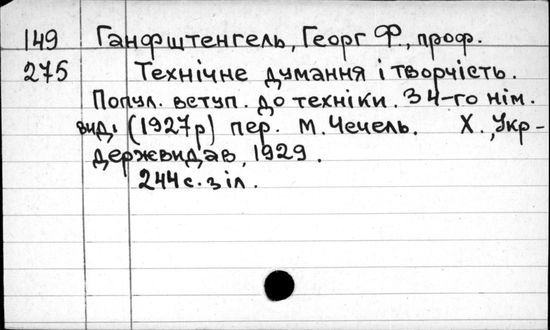 149 Ганфштенгель, Георг Ф., проф.
275 Технічне думання і творчість.
Попул. вступ. до техніки. З 4-го нім.
вид. (1927р) пер. М. Чечель. Х., Укр-
держвидав, 1929.
244 с. з іл.